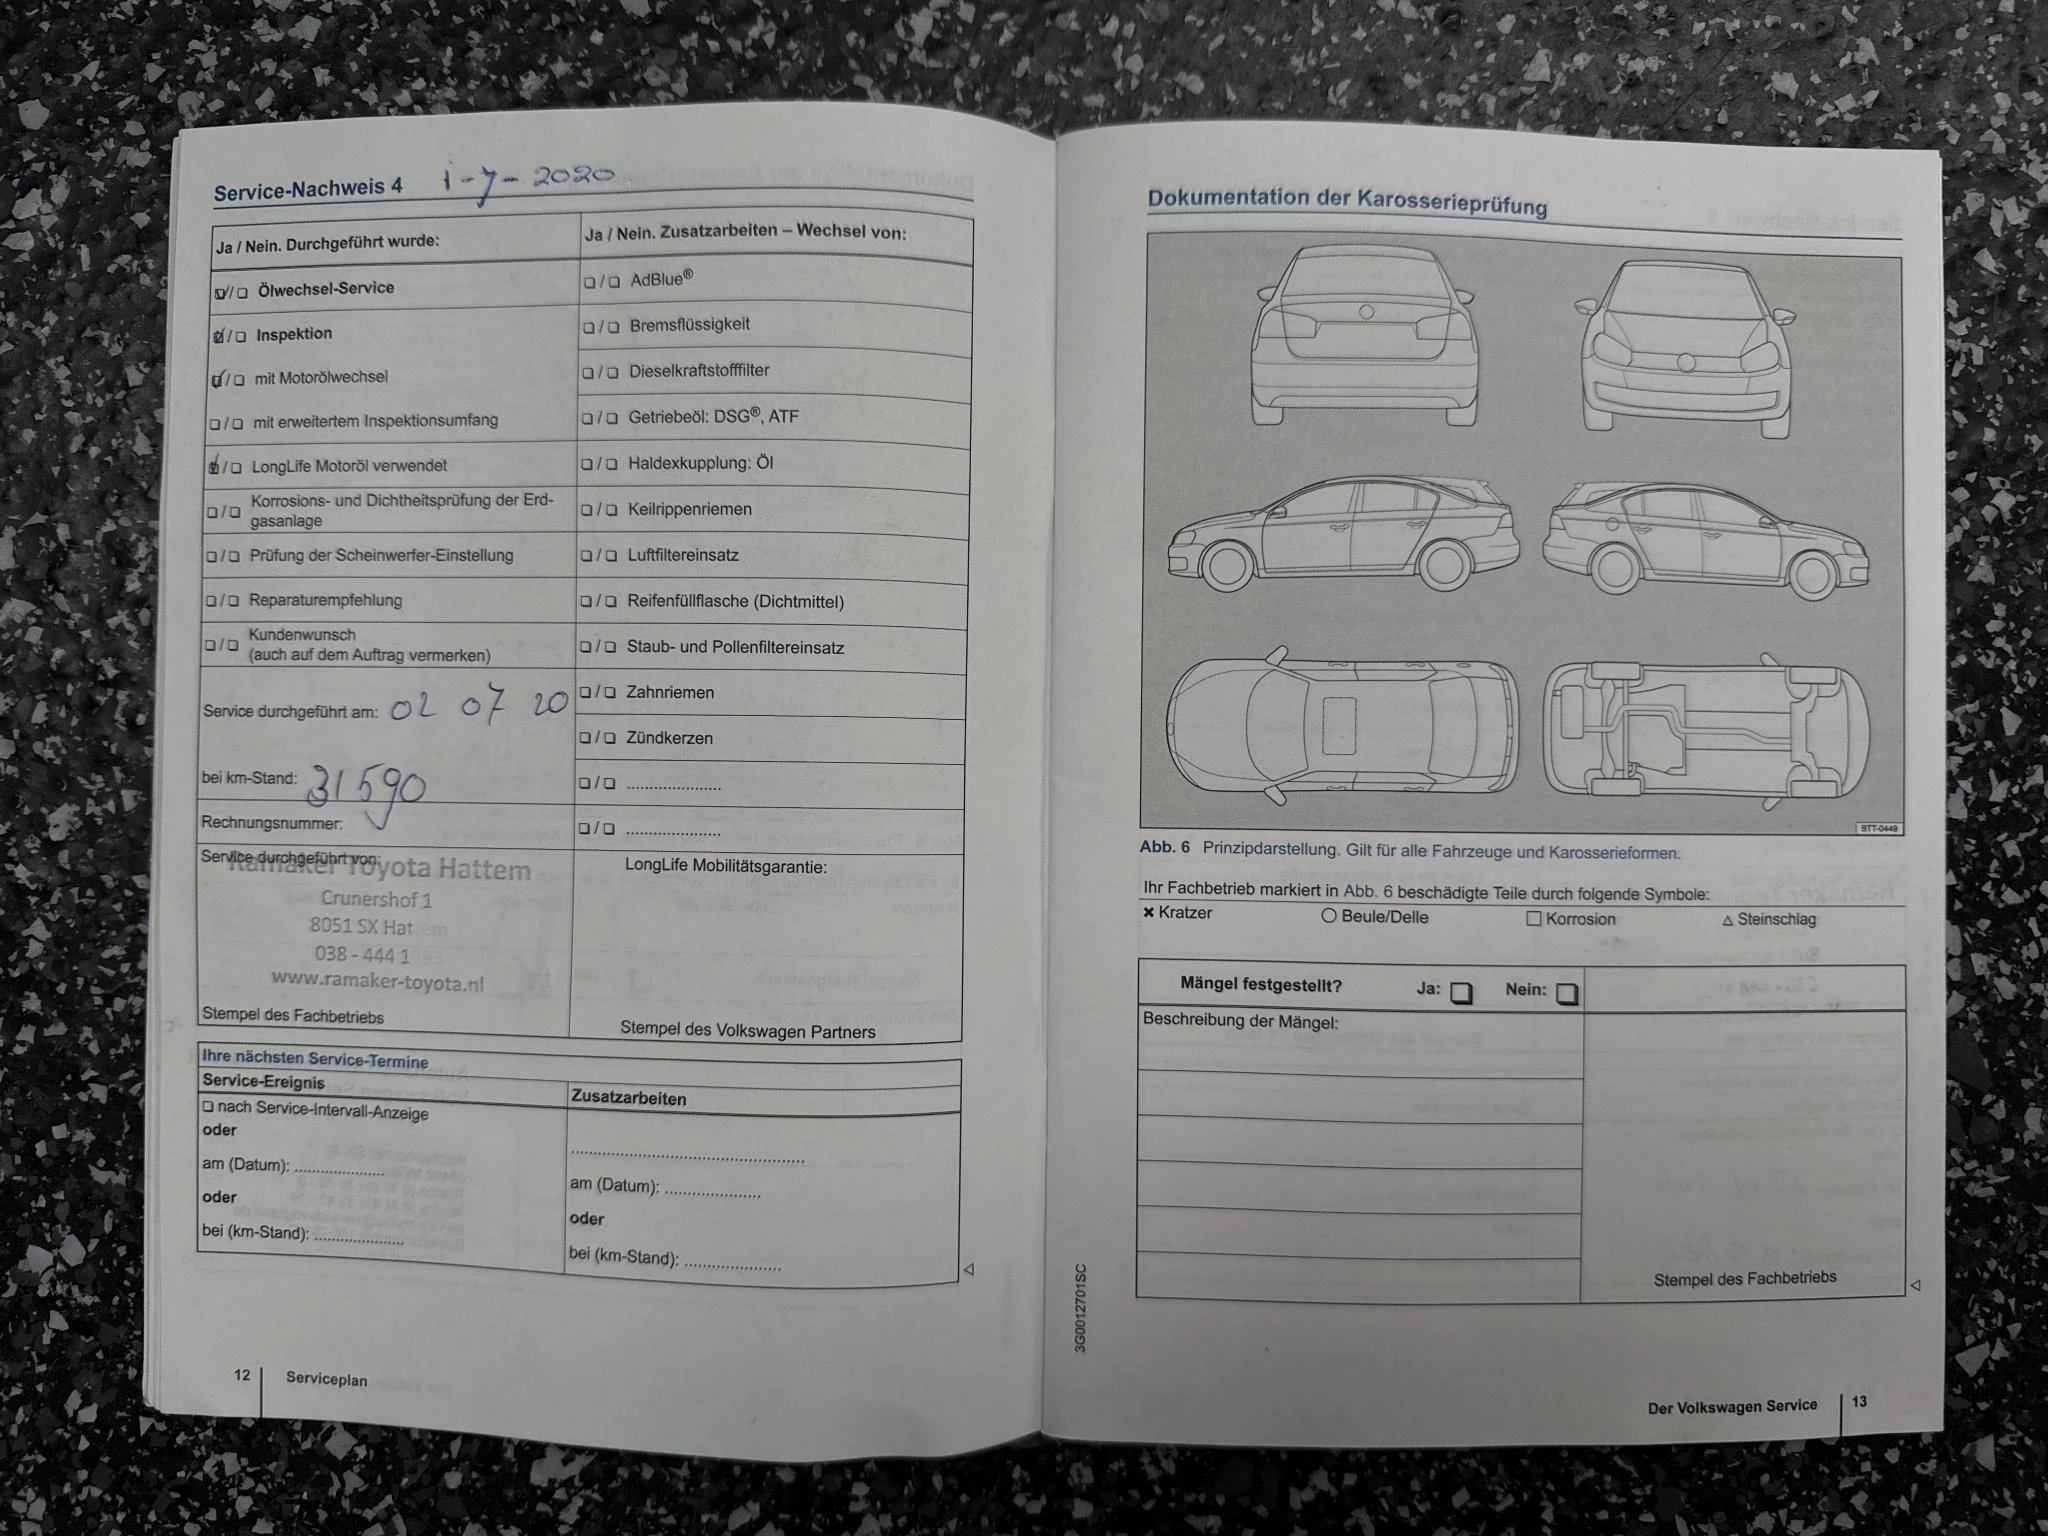 Service-Nachweis 4 1-7-2020
Ja / Nein. Durchgeführt wurde:
☑/☐ Ölwechsel-Service
☑/☐ Inspektion
☑/☐ mit Motorölwechsel
☐/☐ mit erweitertem Inspektionsumfang
☑/☐ LongLife Motoröl verwendet
☐/☐ Korrosions- und Dichtheitsprüfung der Erd-
gasanlage
☐/☐ Prüfung der Scheinwerfer-Einstellung
☐/☐ Reparaturempfehlung
☐/☐ Kundenwunsch
(auch auf dem Auftrag vermerken)
Service durchgeführt am: 02 07 20
bei km-Stand: 31590
Rechnungsnummer:
Service durchgeführt von:
Ramaker Toyota Hattem
Crunershof 1
8051 SX Hattem
038 - 444 1093
www.ramaker-toyota.nl
Stempel des Fachbetriebs
Ja / Nein. Zusatzarbeiten – Wechsel von:
☐/☐ AdBlue®
☐/☐ Bremsflüssigkeit
☐/☐ Dieselkraftstofffilter
☐/☐ Getriebeöl: DSG®, ATF
☐/☐ Haldexkupplung: Öl
☐/☐ Keilrippenriemen
☐/☐ Luftfiltereinsatz
☐/☐ Reifenfüllflasche (Dichtmittel)
☐/☐ Staub- und Pollenfiltereinsatz
☐/☐ Zahnriemen
☐/☐ Zündkerzen
☐/☐ .....................
☐/☐ .....................
LongLife Mobilitätsgarantie:
Stempel des Volkswagen Partners
Ihre nächsten Service-Termine
Service-Ereignis
☐ nach Service-Intervall-Anzeige
oder
am (Datum): ....................
oder
bei (km-Stand): ....................
Zusatzarbeiten
..................................................
am (Datum): .....................
oder
bei (km-Stand): .....................
12 Serviceplan
Dokumentation der Karosserieprüfung
BTT-0449
Abb. 6 Prinzipdarstellung. Gilt für alle Fahrzeuge und Karosserieformen.
Ihr Fachbetrieb markiert in Abb. 6 beschädigte Teile durch folgende Symbole:
× Kratzer ○ Beule/Delle □ Korrosion △ Steinschlag
Mängel festgestellt? Ja: ☐ Nein: ☐
Beschreibung der Mängel:
Stempel des Fachbetriebs
3G0012701SC
Der Volkswagen Service 13